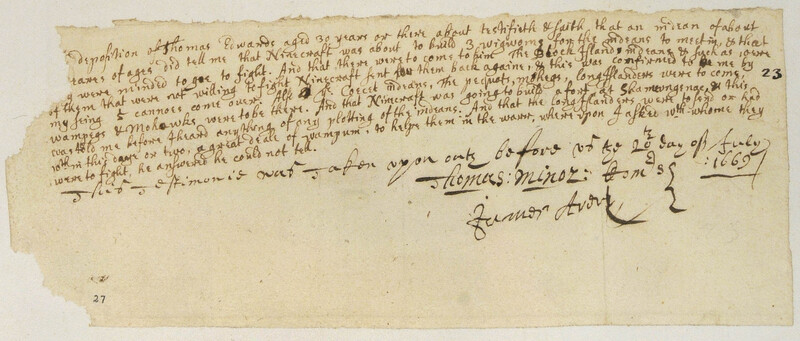 deposition of Thomas Edwards aged 30 years or there about testifieth & saith, that an indean of about
yeares of ages did tell me that Ninecraft was about to build 3 wigwams for the indeans to meet in, & that
y were minded to goe to fight. And that there were to come to him The Block Island indeans & such as were
of them that were not willing to fight Ninecraft sent them back againe, & this was confirmed to me by
my seing cannoes come over. Coecet indeans, The pequats, mohegs, long Ilanders were to come,
wampegs & Mohawks were to be there. And that Ninecraft was going to build a fort at Shamungsnac, & this
was told me before I heard anything of any plotting of the indeans. And that the long Ilanders were to send or had
within this or two, a great deall of wampum, to helpe them in the warr, where upon I asked wth whome they
were to fight, he answered he could not tell.
This Testimonie was Taken upon oath before us the day of July
Thomas: Minor: 1669
James Avery
23
27